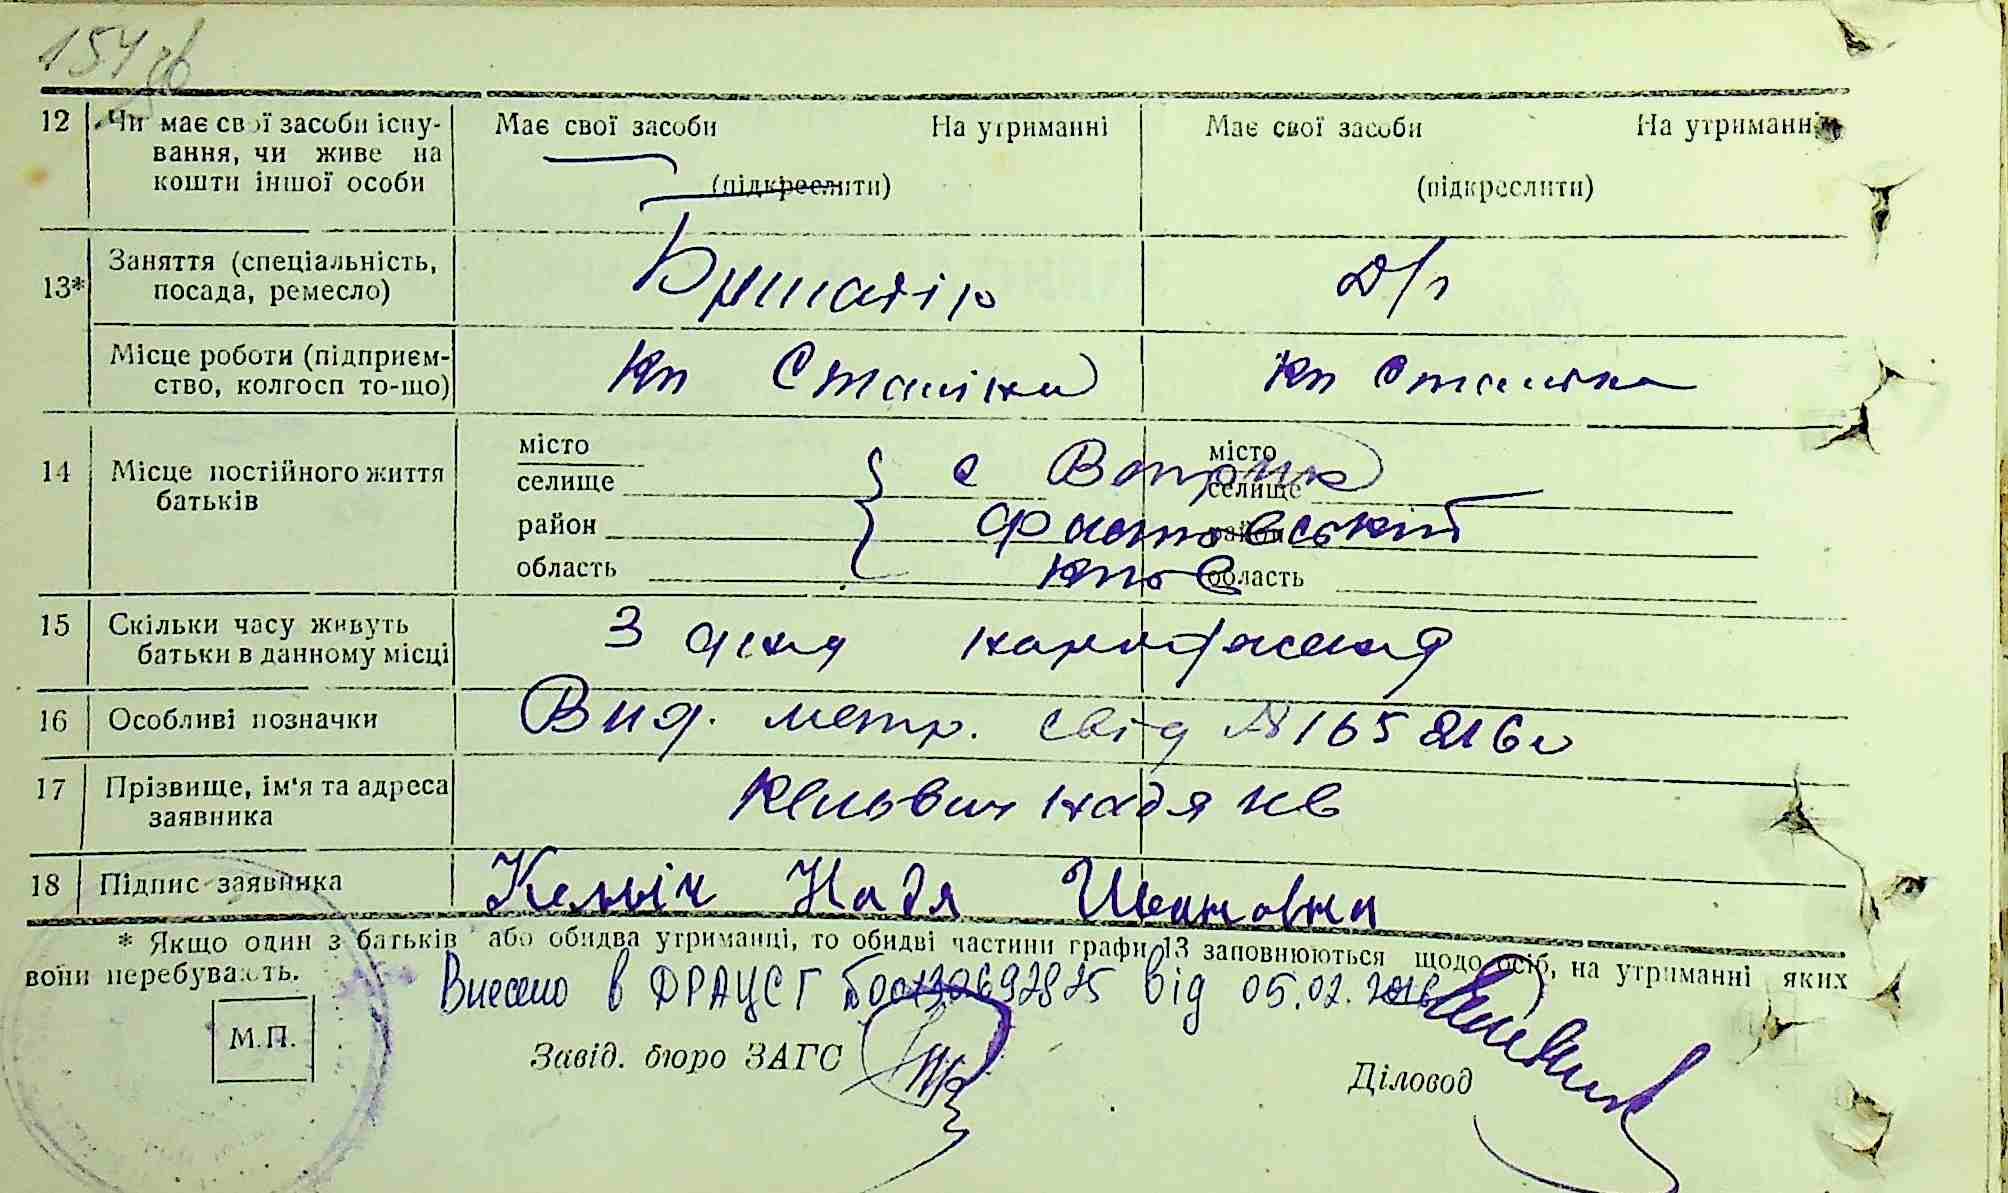 154 зв
12 Чи має свої засоби існу- Має свої засоби На утриманні Має свої засоби На утриманні
вання, чи живе на
кошти іншої особи (підкреслити) (підкреслити)
13* Заняття (спеціальність, Д/г
посада, ремесло)
Місце роботи (підприєм- Кп Сталіна Кп Сталіна
ство, колгосп то-що)
14 Місце постійного життя місто с місто
батьків селище селище
район район
область область
15 Скільки часу живуть З дня народження
батьки в данному місці
16 Особливі позначки Вид. метр. свід №
17 Прізвище, ім'я та адреса Надя Ив
заявника
18 Підпис заявника Надя Ивановна
* Якщо один з батьків або обидва утриманці, то обидві частини графи 13 заповнюються щодо осіб, на утриманні яких
вони перебувають.
Внесено в ДРАЦСГ від 05.02.
М.П.
Завід. бюро ЗАГС Діловод